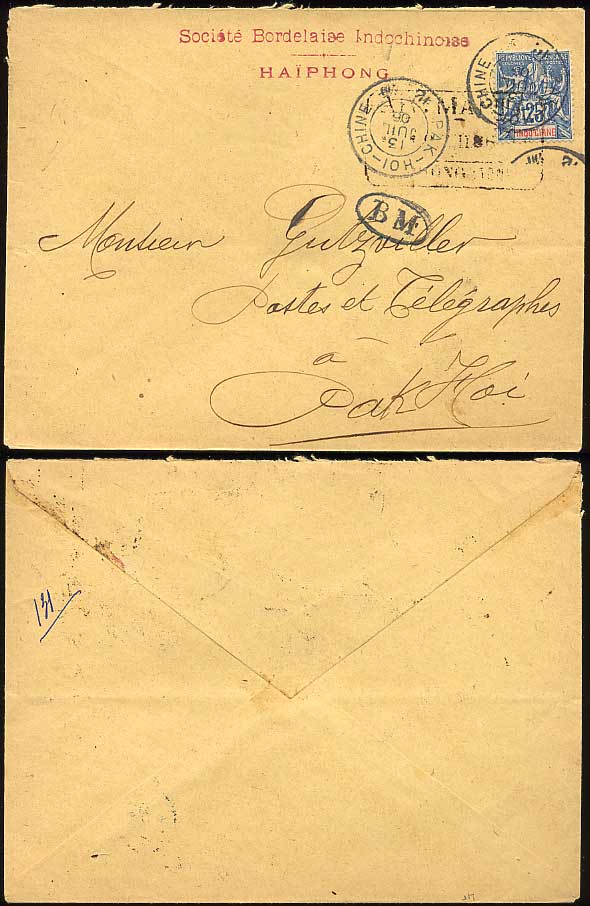 Société Bordelaise Indochinoise
HAÏPHONG
CHINE
RÉPUBLIQUE FRANÇAISE
COLONIES POSTES
25
INDO-CHINE
PAK-HOI-CHINE
13
JUIL
06
BM
Monsieur Gutzviller
Postes et Télégraphes
à
Pak Hoi
131